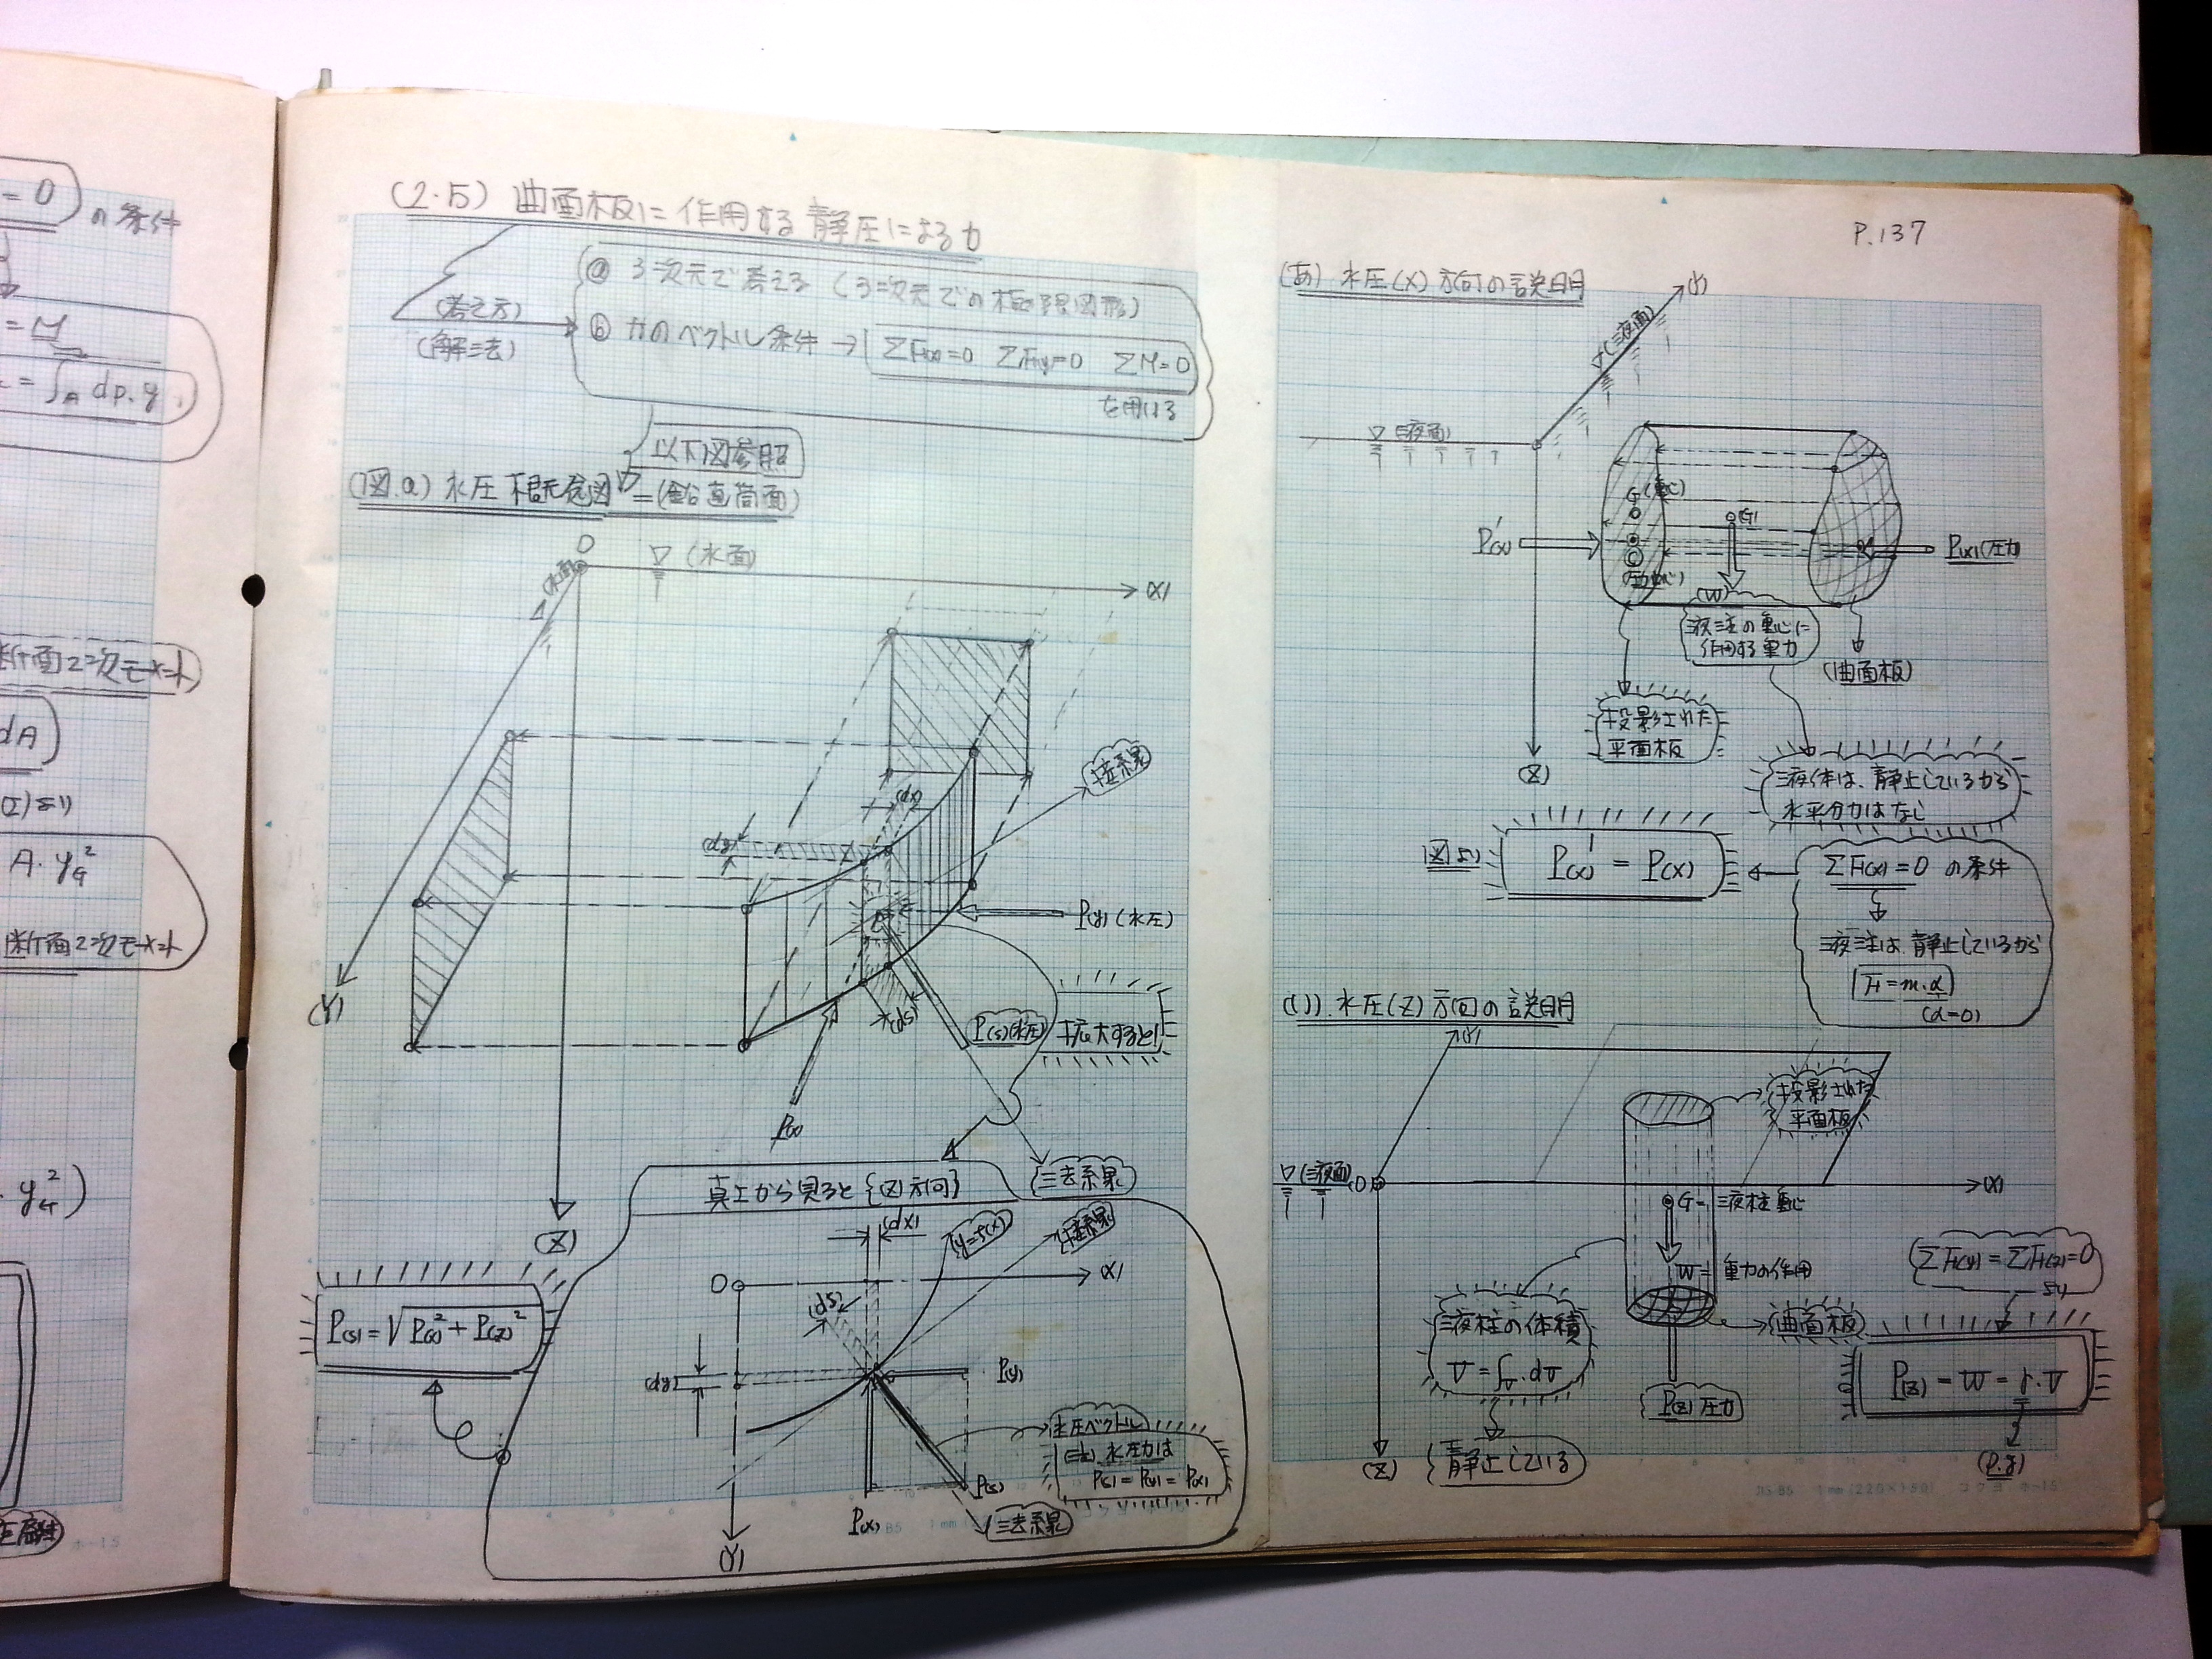 = 0 の条件
= M
= ∫A dp.y
断面2次モーメント
dA)
(2)より
A. yG²
断面2次モーメント
. yG²)
(2.5) 曲面板に作用する静圧による力
(考え方)
(解法)
ⓐ 3次元で考える (3次元での極限図形)
ⓑ 力のベクトル条件 → ΣF(x)=0 ΣF(y)=0 ΣM=0
を用いる
以下図参照
(図.a) 水圧概念図=(鉛直筒面)
O ▽ (水面) (X)
(水面)
(dx)
接線
(dy)
P(y) (水圧)
(Y)
(ds)
P(s)(水圧)
拡大すると!
P(x)
法線
(Z)
真上から見ると {(Z)方向}
(dx) y=f(x) 接線
O (X)
(ds)
P(s)=√P(x)²+P(z)²
(dy) P(y)
水圧ベクトル
(注) 水圧力は
P(s)=P(y)=P(x)
P(s)
P(x) 法線
(Y)
P.137
(あ) 水圧(X)方向の説明
(Y)
▽(液面)
▽(液面)
G(重心)
G
P'(x) P(x)(圧力)
C
(圧力中心)
(W)
液柱の重心に
作用する重力
(曲面板)
投影された
平面板
(Z)
液体は、静止しているから
水平分力はなし
図より P'(x) = P(X)
ΣF(x)=0 の条件
液柱は、静止しているから
F=m.α
(α=0)
(い). 水圧(Z)方向の説明
(Y)
投影された
平面板
▽(液面) (O) (X)
G=液柱重心
W=重力の作用
ΣF(y)=ΣF(z)=0
より
液柱の体積
V=∫v.dv
曲面板
P(z) = W = γ.V
P(z)圧力
静止している
(Z)
(ρ.g)